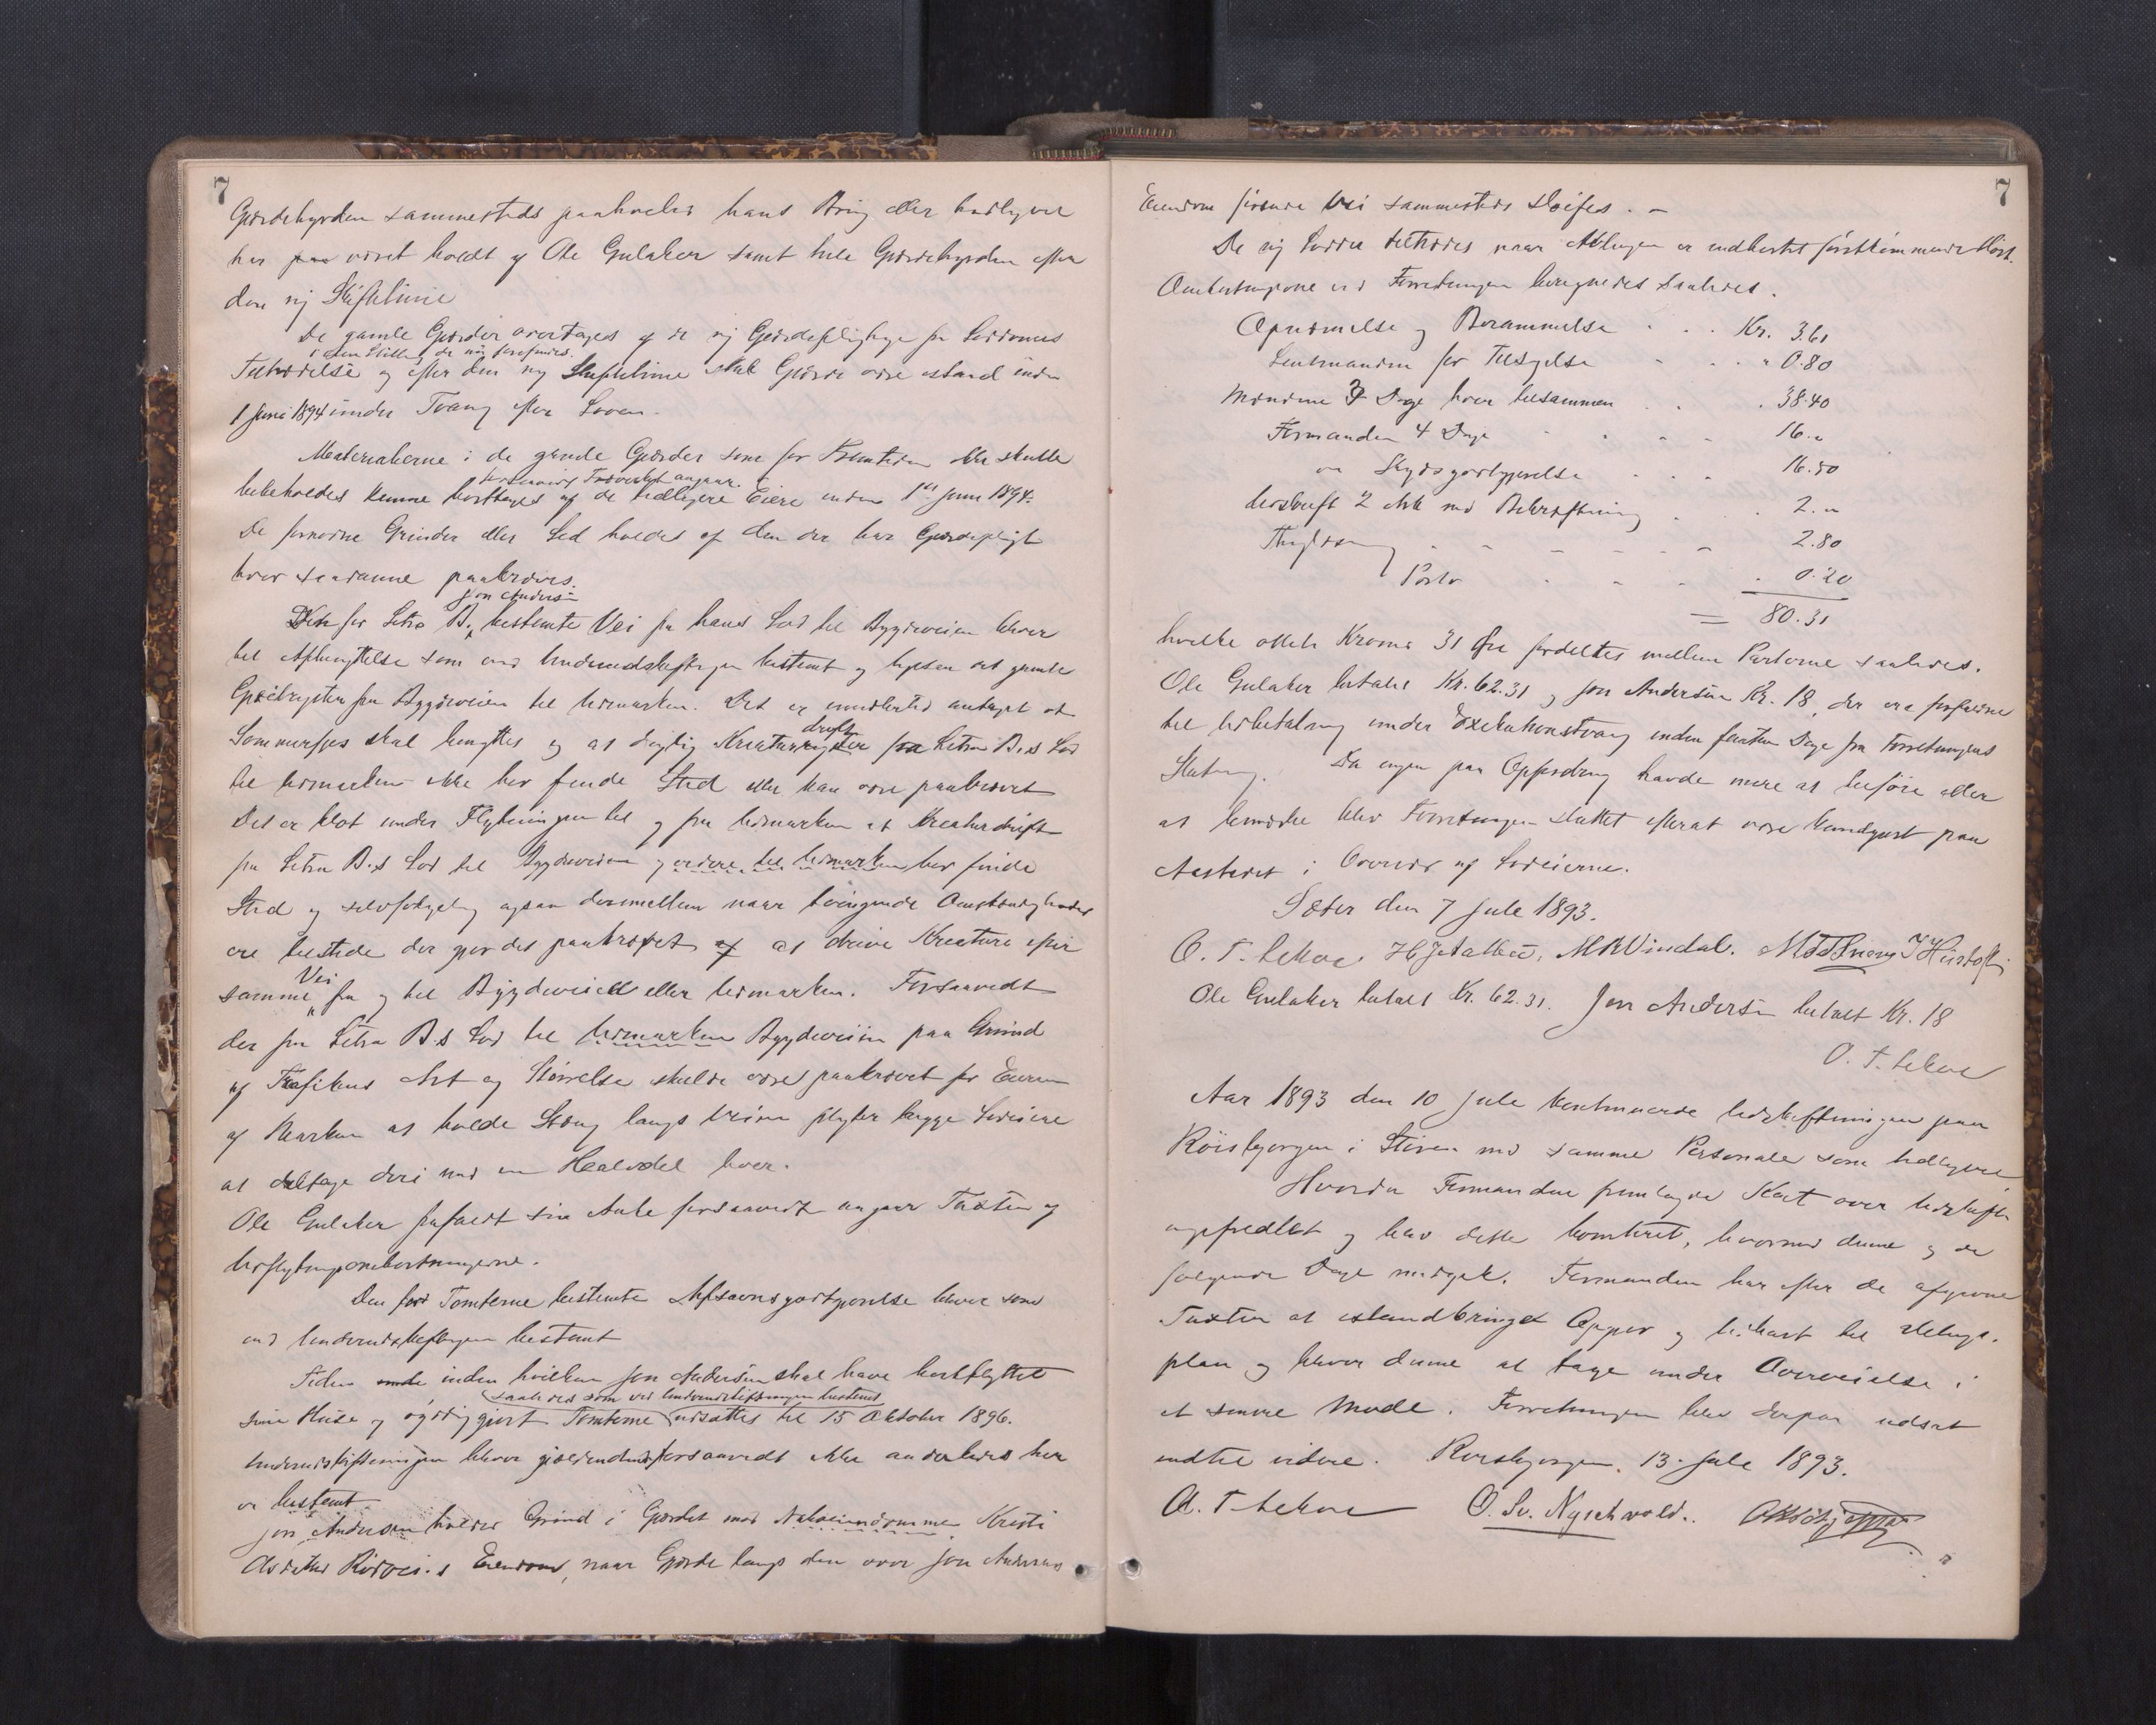 7
Gjærdebyrden sammesteds paahviler hans Brug eller tidligere
har været holdt af Ole Gulaker samt hele Gjærdebyrden efter
den ny Skiftelinie
De gamle Gjærder overtages af de ny Gjærdepligtige fra Loddernes
i den Stilling de nu forefindes.
Tiltrædelse og efter den ny Skiftelinie skal Gjærde være istand inden
1 Juni 1894 under Tvang efter Loven.
Materialerne i de gamle Gjærder som for Fremtiden ikke skulle
forsaavidt Træverket angaar.
bibeholdes kunne borttages af de tidligere Eiere inden 1ste Juni 1894.
De fornødne Grinder eller Led holdes af den der har Gjærdepligt
hvor saadanne paakræves.
Jon Andersen
Den for Litra B. bestemte Vei fra hans Lod til Bygdeveien bliver
til Afbenyttelse som ved Underudskiftningen bestemt og ligesaa det gamle
fra Bygdeveien til Udmarken. Det er imidlertid antaget at
drift
Sommerfjøs skal benyttes og at daglig Kreatur fra Litra B.s Lod
til Udmarken ikke bør finde Sted eller kan være paakrævet
Det er blot under Flytningen til og fra Udmarken at Kreaturdrift
fra Litra B.s Lod til Bygdeveien og videre til Udmarken bør finde
Sted og selvfølgelig ogsaa derimellem naar tvingende Omstændigheder
ere tilstede der gjør det paakrævet at drive Kreature efter
Vei
samme fra og til Bygdeveien eller Udmarken. Forsaavidt
der fra Litra B.s Lod til Udmarken Bygdeveien paa Grund
af Trafikens Art og Størrelse skulde være paakrævet for Eieren
af Marken at holde Stæng langs Veien pligter begge Lodeiere
at deltage deri med en Halvdel hver.
Ole Gulaker frafaldt sin Anke forsaavidt angaar Taxten og
Udflytningsomkostningerne.
Den for Tomterne bestemte Afsavnsgodtgjørelse bliver som
ved Underudskiftningen bestemt
Tiden inden hvilken Jon Andersen skal have bortflyttet
saaledes som ved Underudskiftningen bestemt
sine Huse og rydiggjort Tomterne udsættes til 15 Oktober 1896.
Underudskiftningen bliver gjældende forsaavidt ikke anderledes her
er bestemt.
Jon Andersen holder Grind i Gjærdet mod Naboeiendommen Kristi
Rødvei.s Eiendom, naar Gjærde langs den over Jon Andersens
7
Eiendom førende Vei sammesteds sløifes. –
De ny Lodder tiltrædes naar Avlingen er indhøstet førstkommende Høst.
Omkostningerne ved Forretningen beregnedes saaledes.
Opnævnelse og Berammelse . . . Kr. 3.61
Lensmanden for Tilsigelse - . . " 0.80
Mændene 3 Dage hver tilsammen . . . 38.40
Formanden 4 Dage - - - - 16."
en Skydsgodtgjørelse . . . 16.50
Udskrift 2 Ark med Bekræftning . . 2."
Thinglæsning - - - - - - 2.80
Porto - - - . 0.20
= 80.31
hvilke otteti Kroner 31 Øre fordeltes mellem Parterne saaledes.
Ole Gulaker betaler Kr. 62.31 og Jon Andersen Kr. 18, der ere forfaldne
til Udbetaling under Exekutionstvang inden fjorten Dage fra Forretningens
Slutning. Da ingen paa Opfordring havde mere at tilføre eller
at bemærke blev Forretningen sluttet efterat være kundgjort paa
Aastedet i Overvær af Lodeierne.
Sæter den 7 Juli 1893.
O. T. M R Vindal.
Ole Gulaker betalt Kr. 62.31. Jon Andersen betalt Kr. 18
O. T.
Aar 1893 den 10 Juli kontinuerede Udskiftningen paa
Röisbyorgen i Stiren med samme Personale som tidligere
Hvorda Formanden fremlagde Kart over Udskifts
ningsfeldtet og blev dette konteret, hvormed denne og de
følgende Dage medgik. Formanden har efter de afgivne
Taxter at istandbringe Opgjør og Udkast til Delings-
plan og bliver denne at tage under Overveielse i
et senere Møde. Forretningen blev derpaa udsat
indtil videre. Röisbyorgen 13. Juli 1893.
O. T. O. Sv. Nyschwold.